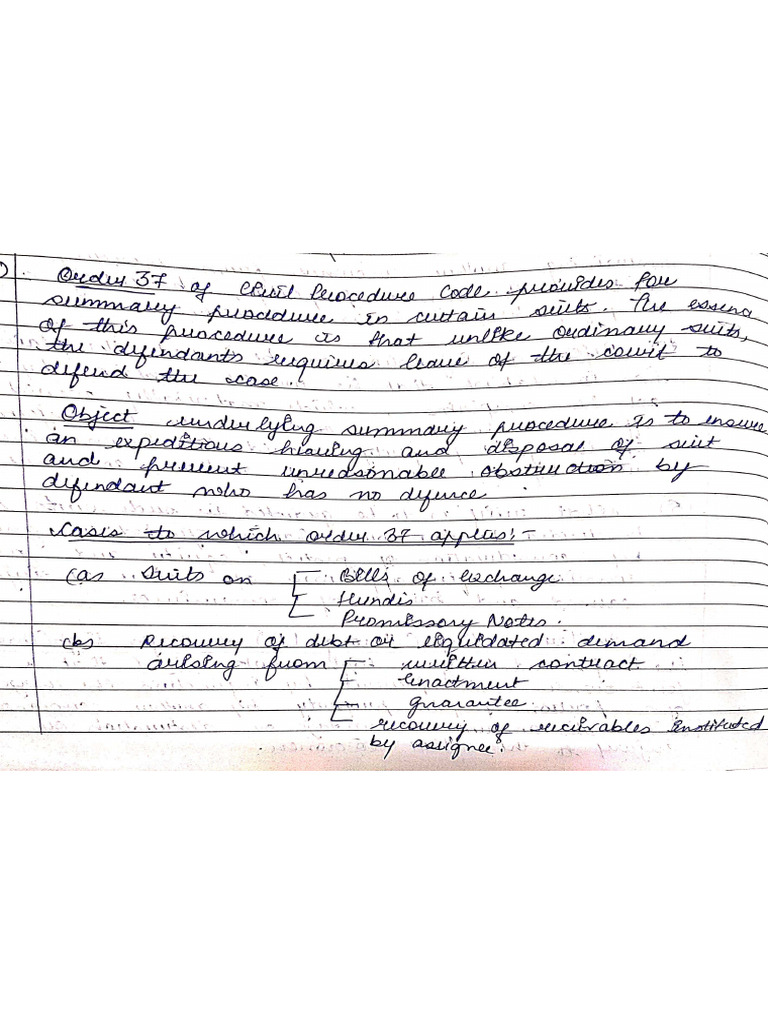 Order 37 of Civil Procedure Code provides for
summary procedure in certain suits. The essence
of this procedure is that unlike ordinary suits,
the defendants requires leave of the court to
defend the case.
Object underlying summary procedure is to ensure
an expeditious hearing and disposal of suit
and prevent unreasonable obstruction by
defendant who has no defence.
Cases to which order 37 applies:-
(a) Suits on Bills of exchange
Hundis
Promissory Notes.
(b) Recovery of debt or liquidated demand
arising from written contract
enactment
guarantee
recovery of receivables instituted
by assignee